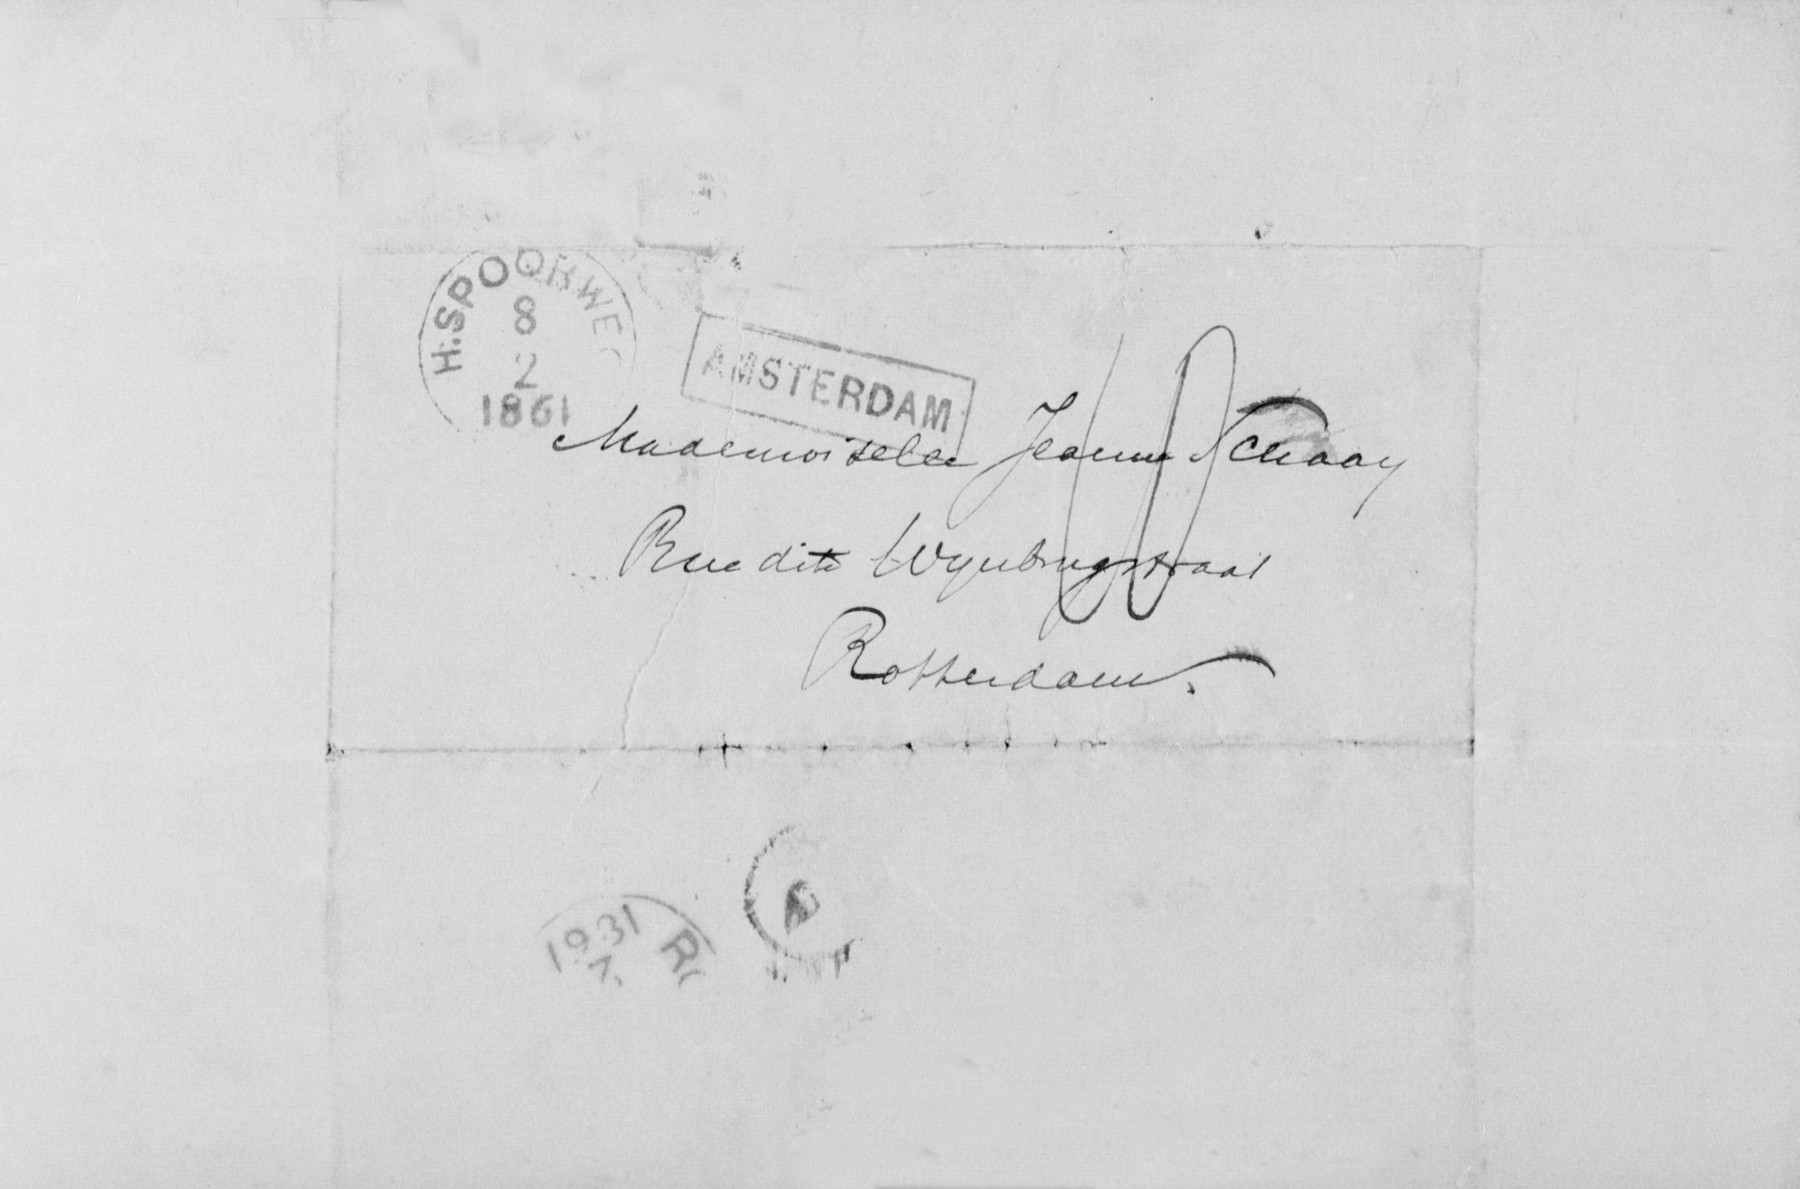 H.SPOORWEG
8
2
1861
AMSTERDAM
10
Mademoiselle Jeanne Schaay
Rue dite Wynbrugstraat
Rotterdam.
1861
R